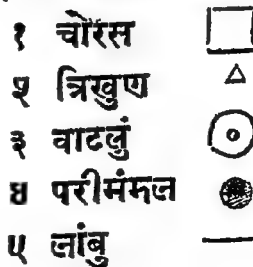 १ चोरस
२ त्रिखुण
३ वाटलुं
४ परीमंमल
५ लांबु